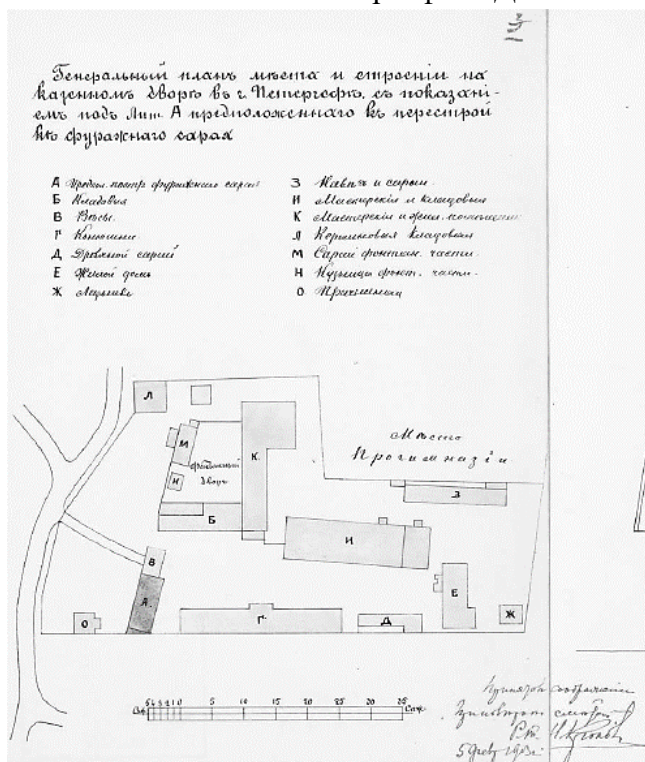 Генеральный планъ мѣста и строенiи на
казенномъ дворѣ въ г. Петергофѣ, съ показанi-
емъ подъ Лит. А предположеннаго къ перестрой
кѣ фуражнаго сарая
А фуражнаго сарая
Б Кладовыя
В Вѣсы.
Г Конюшни
Д Дровяной сарай
Е Жилой домъ
Ж Ледникъ
З Навѣсъ и сараи.
И Мастерскiя и кладовыя
К Мастерскiя и жил. помѣщенiя
Л Керосиновыя кладовыя
М Сарай фонтан. части.
Н Кузница фонт. части.
О
Л
М
Н
К
Фонтанный
дворъ
Б
Мѣсто
Прогимназiи
З
И
В
А.
О
Г.
Д
Е
Ж
Саж. 5 4 3 2 1 0 5 10 15 20 25 Саж.